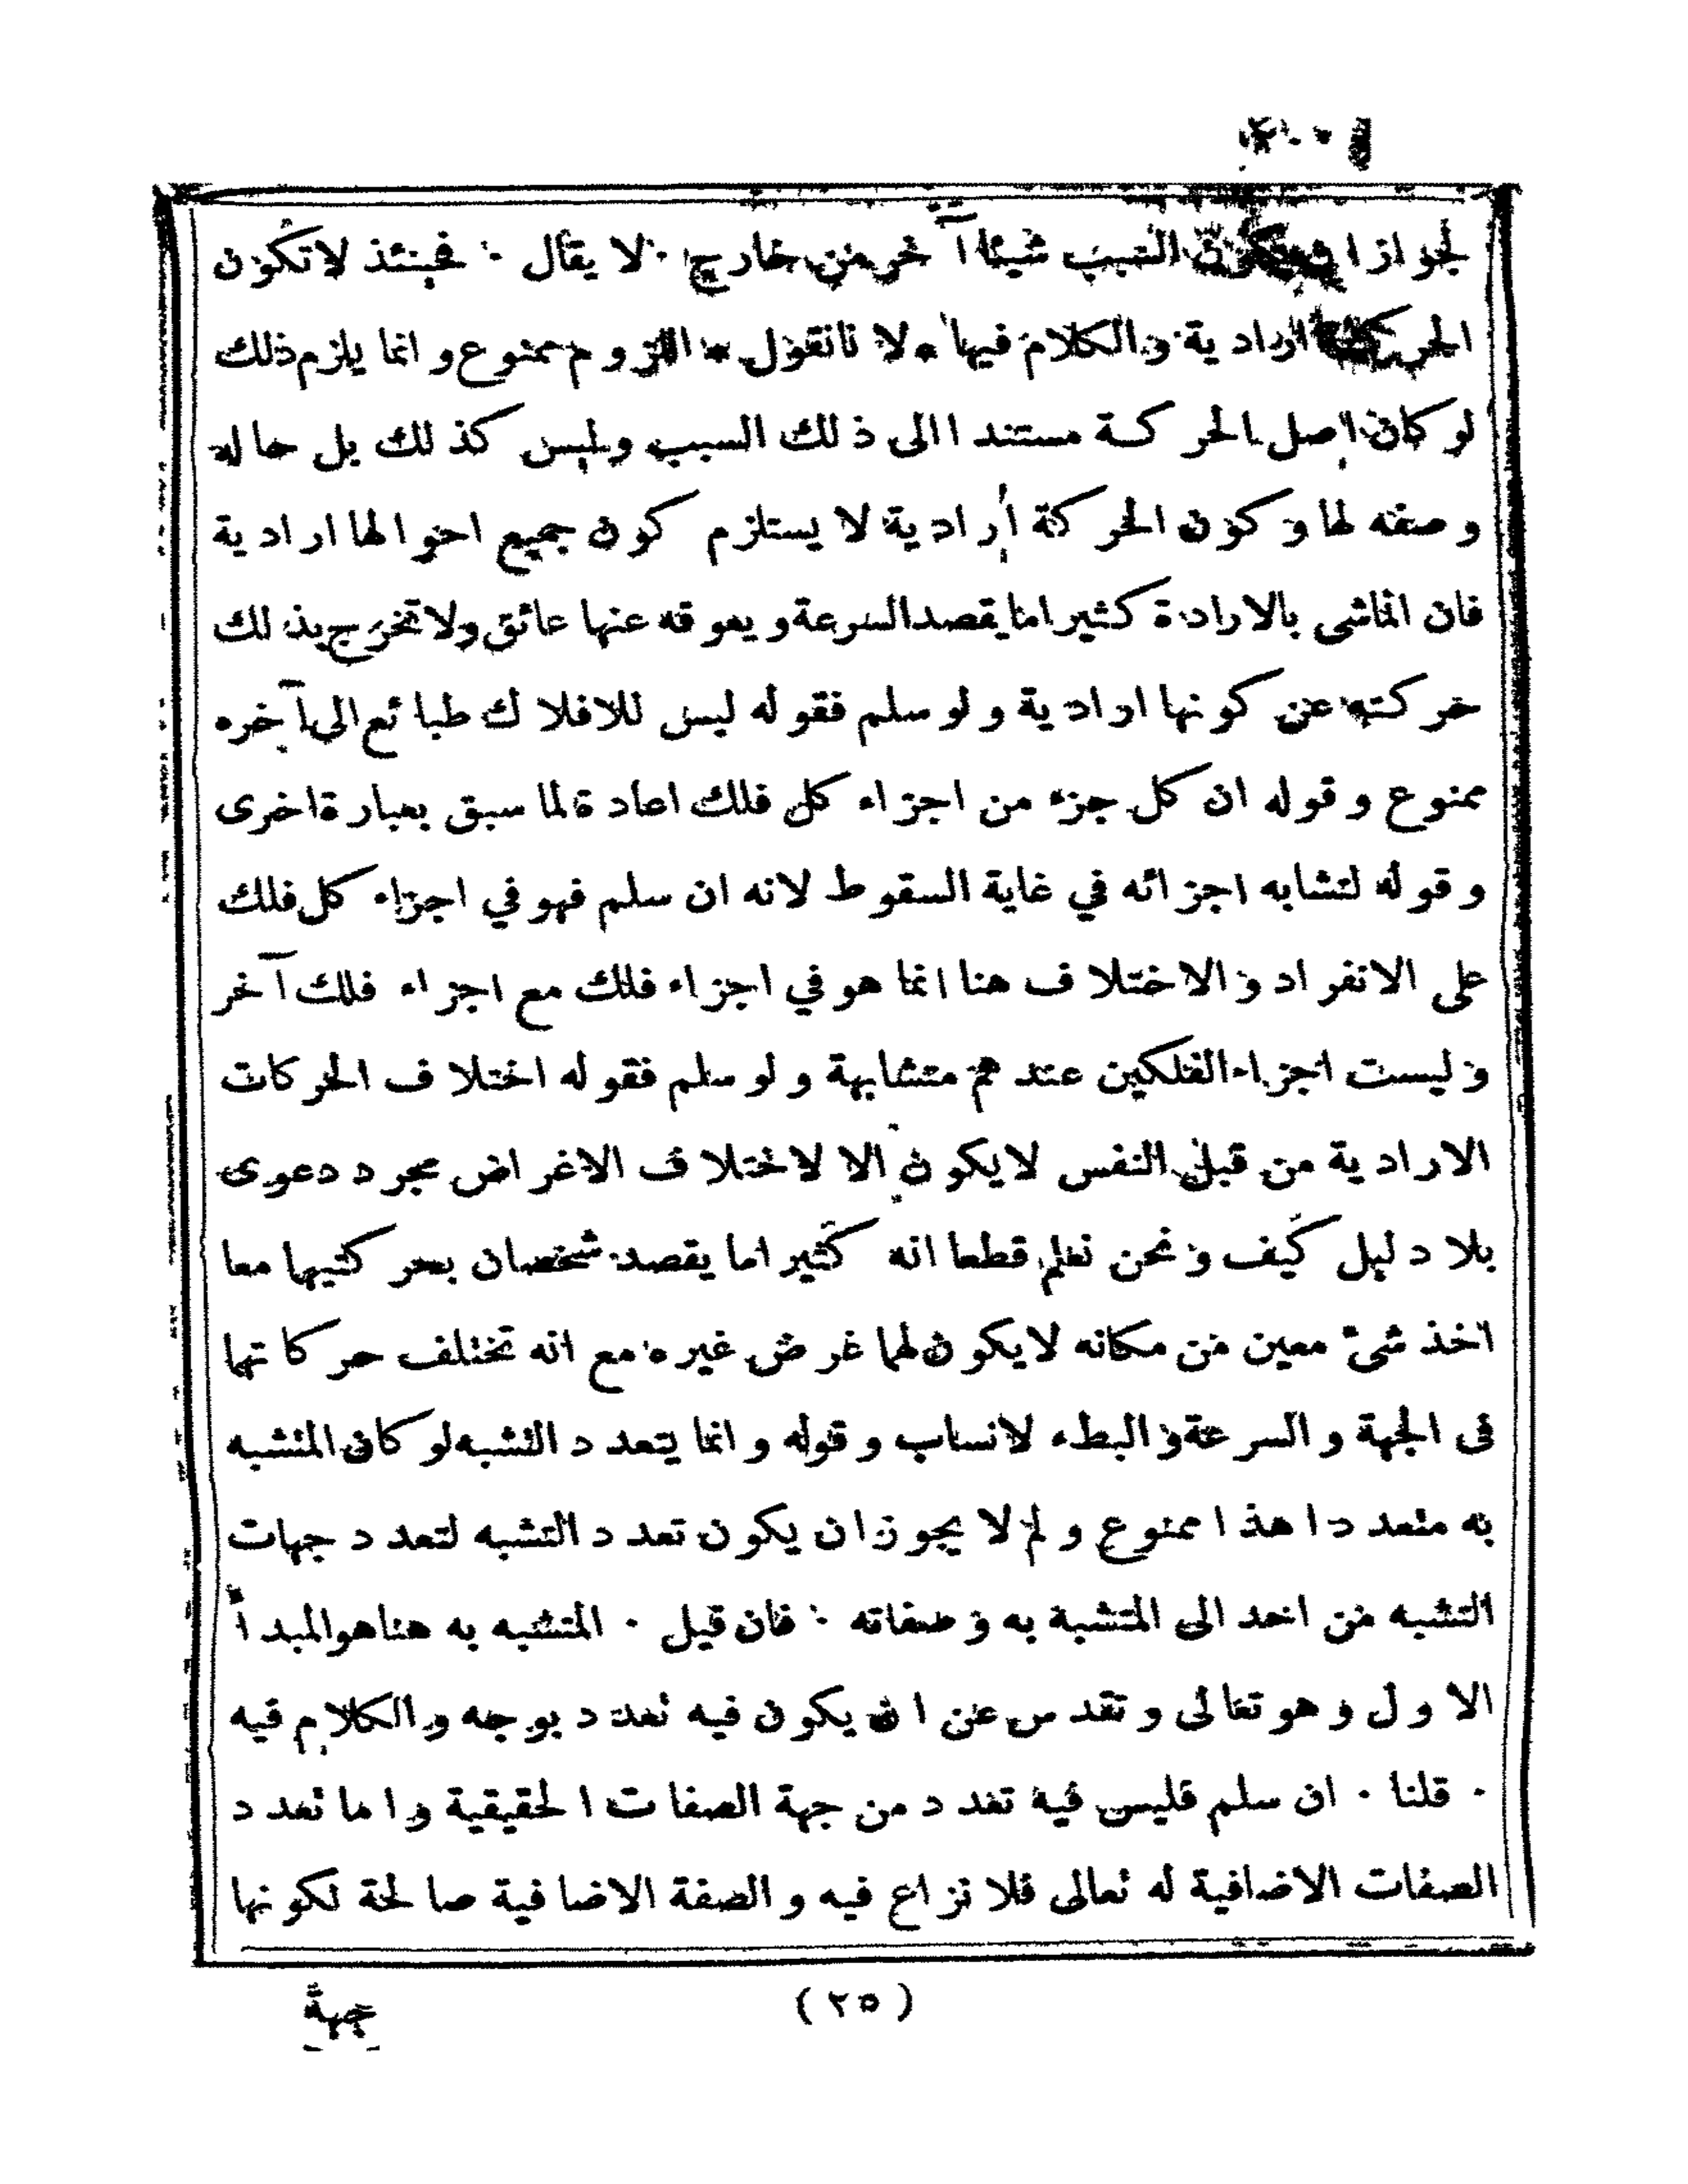 لجواز ان يكون السبب شيئا آخر من خارج · لا يقال · فحينئذ لا تكون
الحركة ارادية والكلام فيها * لا نا نقول * اللزوم ممنوع وانما يلزم ذلك
لو كان اصل الحركة مستندا الى ذلك السبب وليس كذلك بل حاله
وصفه لها وكون الحركة أرادية لا يستلزم كون جميع احوالها ارادية
فان الماشى بالارادة كثيرا ما يقصد السرعة ويعوقه عنها عائق ولا تخرج بذلك
حركته عن كونها ارادية ولو سلم فقوله ليس للافلاك طبائع الى آخره
ممنوع وقوله ان كل جزء من اجزاء كل فلك اعادة لما سبق بعبارة اخرى
وقوله لتشابه اجزائه في غاية السقوط لانه ان سلم فهو في اجزاء كل فلك
على الانفراد والاختلاف هنا انما هو في اجزاء فلك مع اجزاء فلك آخر
وليست اجزاء الفلكين عند هم متشابهة ولو سلم فقوله اختلاف الحركات
الارادية من قبل النفس لا يكون الا لاختلاف الاغراض مجرد دعوى
بلا دليل كيف ونحن نعلم قطعا انه كثيرا ما يقصد شخصان بحركتيهما معا
اخذ شئ معين من مكانه لا يكون لهما غرض غيره مع انه تختلف حركاتهما
فى الجهة والسرعة والبطء لانساب وقوله وانما يتعدد التشبه لو كان المتشبه
به متعددا هذا ممنوع ولم لا يجوز ان يكون تعدد التشبه لتعدد جهات
التشبه من احد الى المتشبة به وصفاته · فان قيل · المتشبه به هنا هو المبدأ
الاول وهو تعالى وتقدس عن ان يكون فيه تعدد بوجه والكلام فيه
· قلنا · ان سلم فليس فيه تعدد من جهة الصفات الحقيقية واما تعدد
الصفات الاضافية له تعالى فلا نزاع فيه والصفة الاضافية صالحة لكونها
(٢٥)
جهة